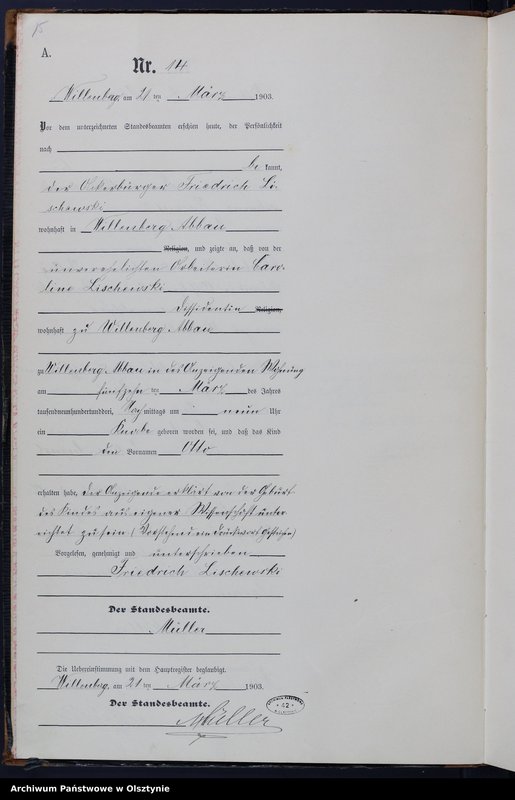 15
A.
Nr. 14
Willenberg am 21 ten März 1903.
Vor dem unterzeichneten Standesbeamten erschien heute, der Persönlichkeit
nach
be kannt,
der Ackerbürger Friedrich Li-
schewski
wohnhaft in Willenberg Abbau
Religion, und zeigte an, daß von der
unverehelichten Arbeiterin Caro-
line Lischewski
Dissidentin Religion,
wohnhaft zu Willenberg Abbau
zu Willenberg Abbau in des Anzeigenden Wohnung
am fünfzehn ten März des Jahres
tausendneunhundertunddrei, Vor mittags um neun Uhr
ein Knabe geboren worden sei, und daß das Kind
den Vornamen Otto
erhalten habe, der Anzeigende erklärt von der Geburt
des Kindes aus eigener Wissenschaft unter
richtet zu sein (Vorstehend ein Druckwort gestrichen)
Vorgelesen, genehmigt und unterschrieben
Friedrich Lischewski
Der Standesbeamte.
Müller
Die Uebereinstimmung mit dem Hauptregister beglaubigt.
Willenberg, am 21 ten März 1903.
Der Standesbeamte.
Müller
42
Archiwum Państwowe w Olsztynie